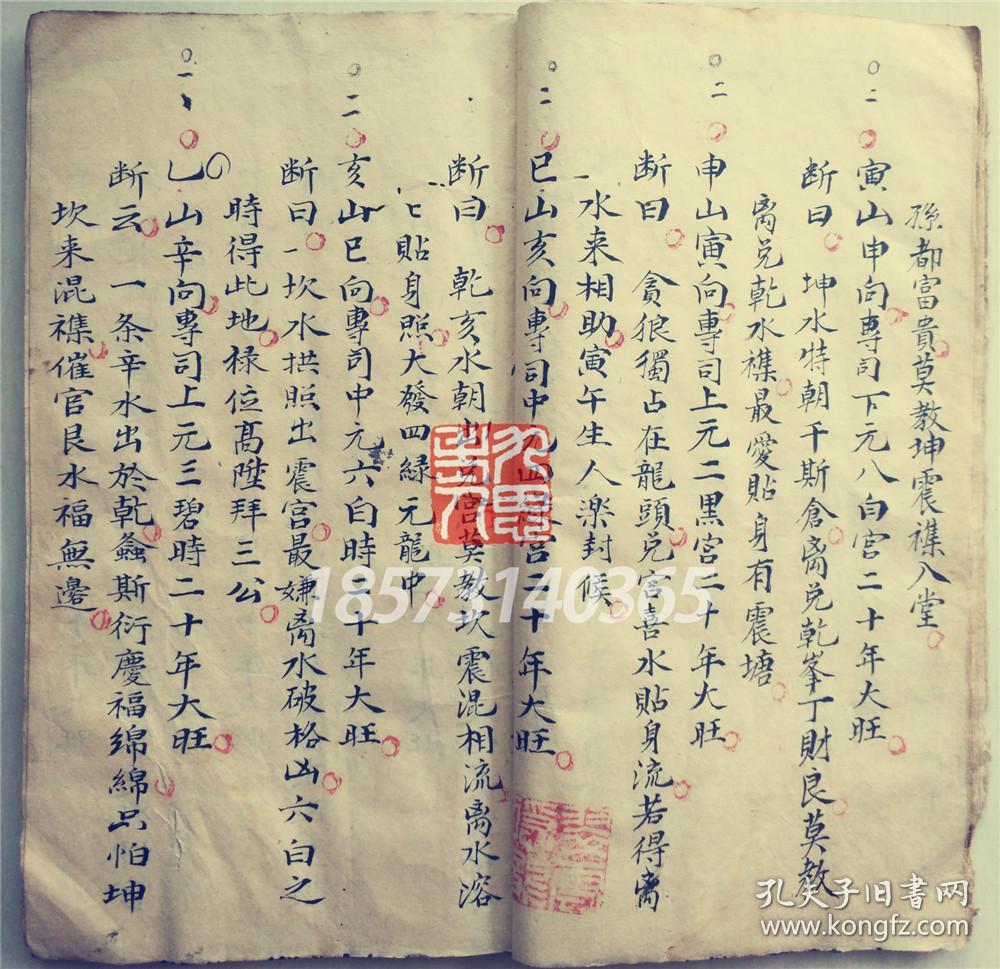 孫都富貴莫教坤震襍入堂
○二 寅山申向專司下元八白宮二十年大旺
断曰 坤水特朝千斯倉离兑乾峯丁財良莫教
离兑乾水襍最愛貼身有震塘
○二 申山寅向專司上元二黑宮二十年大旺
断曰 貪狼獨占在龍頭兑宮喜水貼身流若得离
水来相助寅午生人楽封侯
○二 巳山亥向專司中元四綠宮二十年大旺
断曰 乾亥水朝出兑宮莫教坎震混相流离水溶
〻貼身照大發四緑元龍中
○二 亥山巳向專司中元六白時二十年大旺
断曰 坎水拱照出震宮最嫌离水破格凶六白之
時得此地禄位髙陞拜三公
○一 乙山辛向專司上元三碧時二十年大旺
断云 一条辛水出於乾螽斯衍慶福綿綿只怕坤
坎来混襍催官艮水福無邊
18573140365
孔夫子旧書网
www.kongfz.com